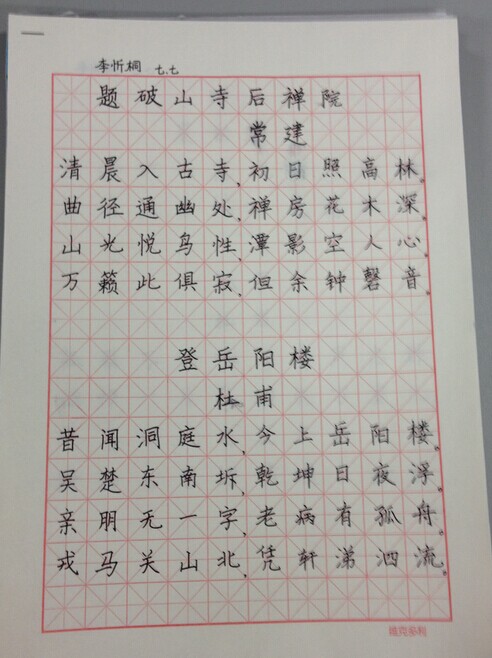 李忻桐 七.七
题破山寺后禅院
常建
清晨入古寺、初日照高林。
曲径通幽处、禅房花木深。
山光悦鸟性、潭影空人心。
万籁此俱寂、但余钟磬音。
登岳阳楼
杜甫
昔闻洞庭水、今上岳阳楼。
吴楚东南坼、乾坤日夜浮。
亲朋无一字、老病有孤舟。
戎马关山北、凭轩涕泗流。
维克多利